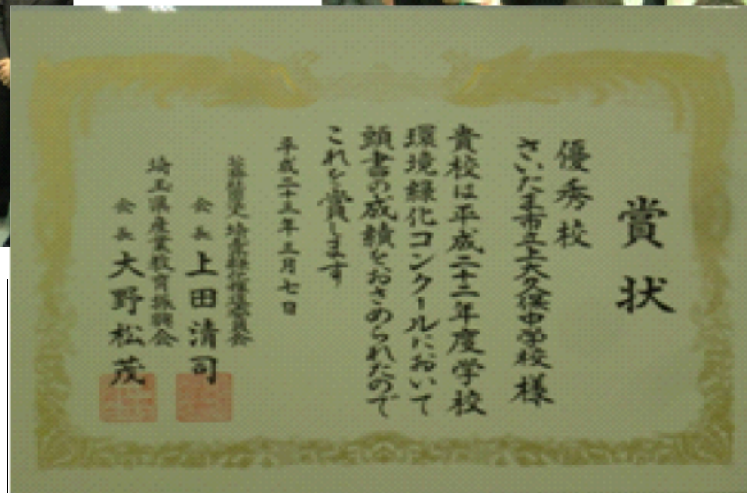 賞状
優秀校
さいたま市立上大久保中学校様
貴校は平成二十二年度学校
環境緑化コンクールにおいて
頭書の成績をおさめられたので
これを賞します
平成二十三年三月七日
会長 上田清司
埼玉県産業教育振興会
会長 大野松茂